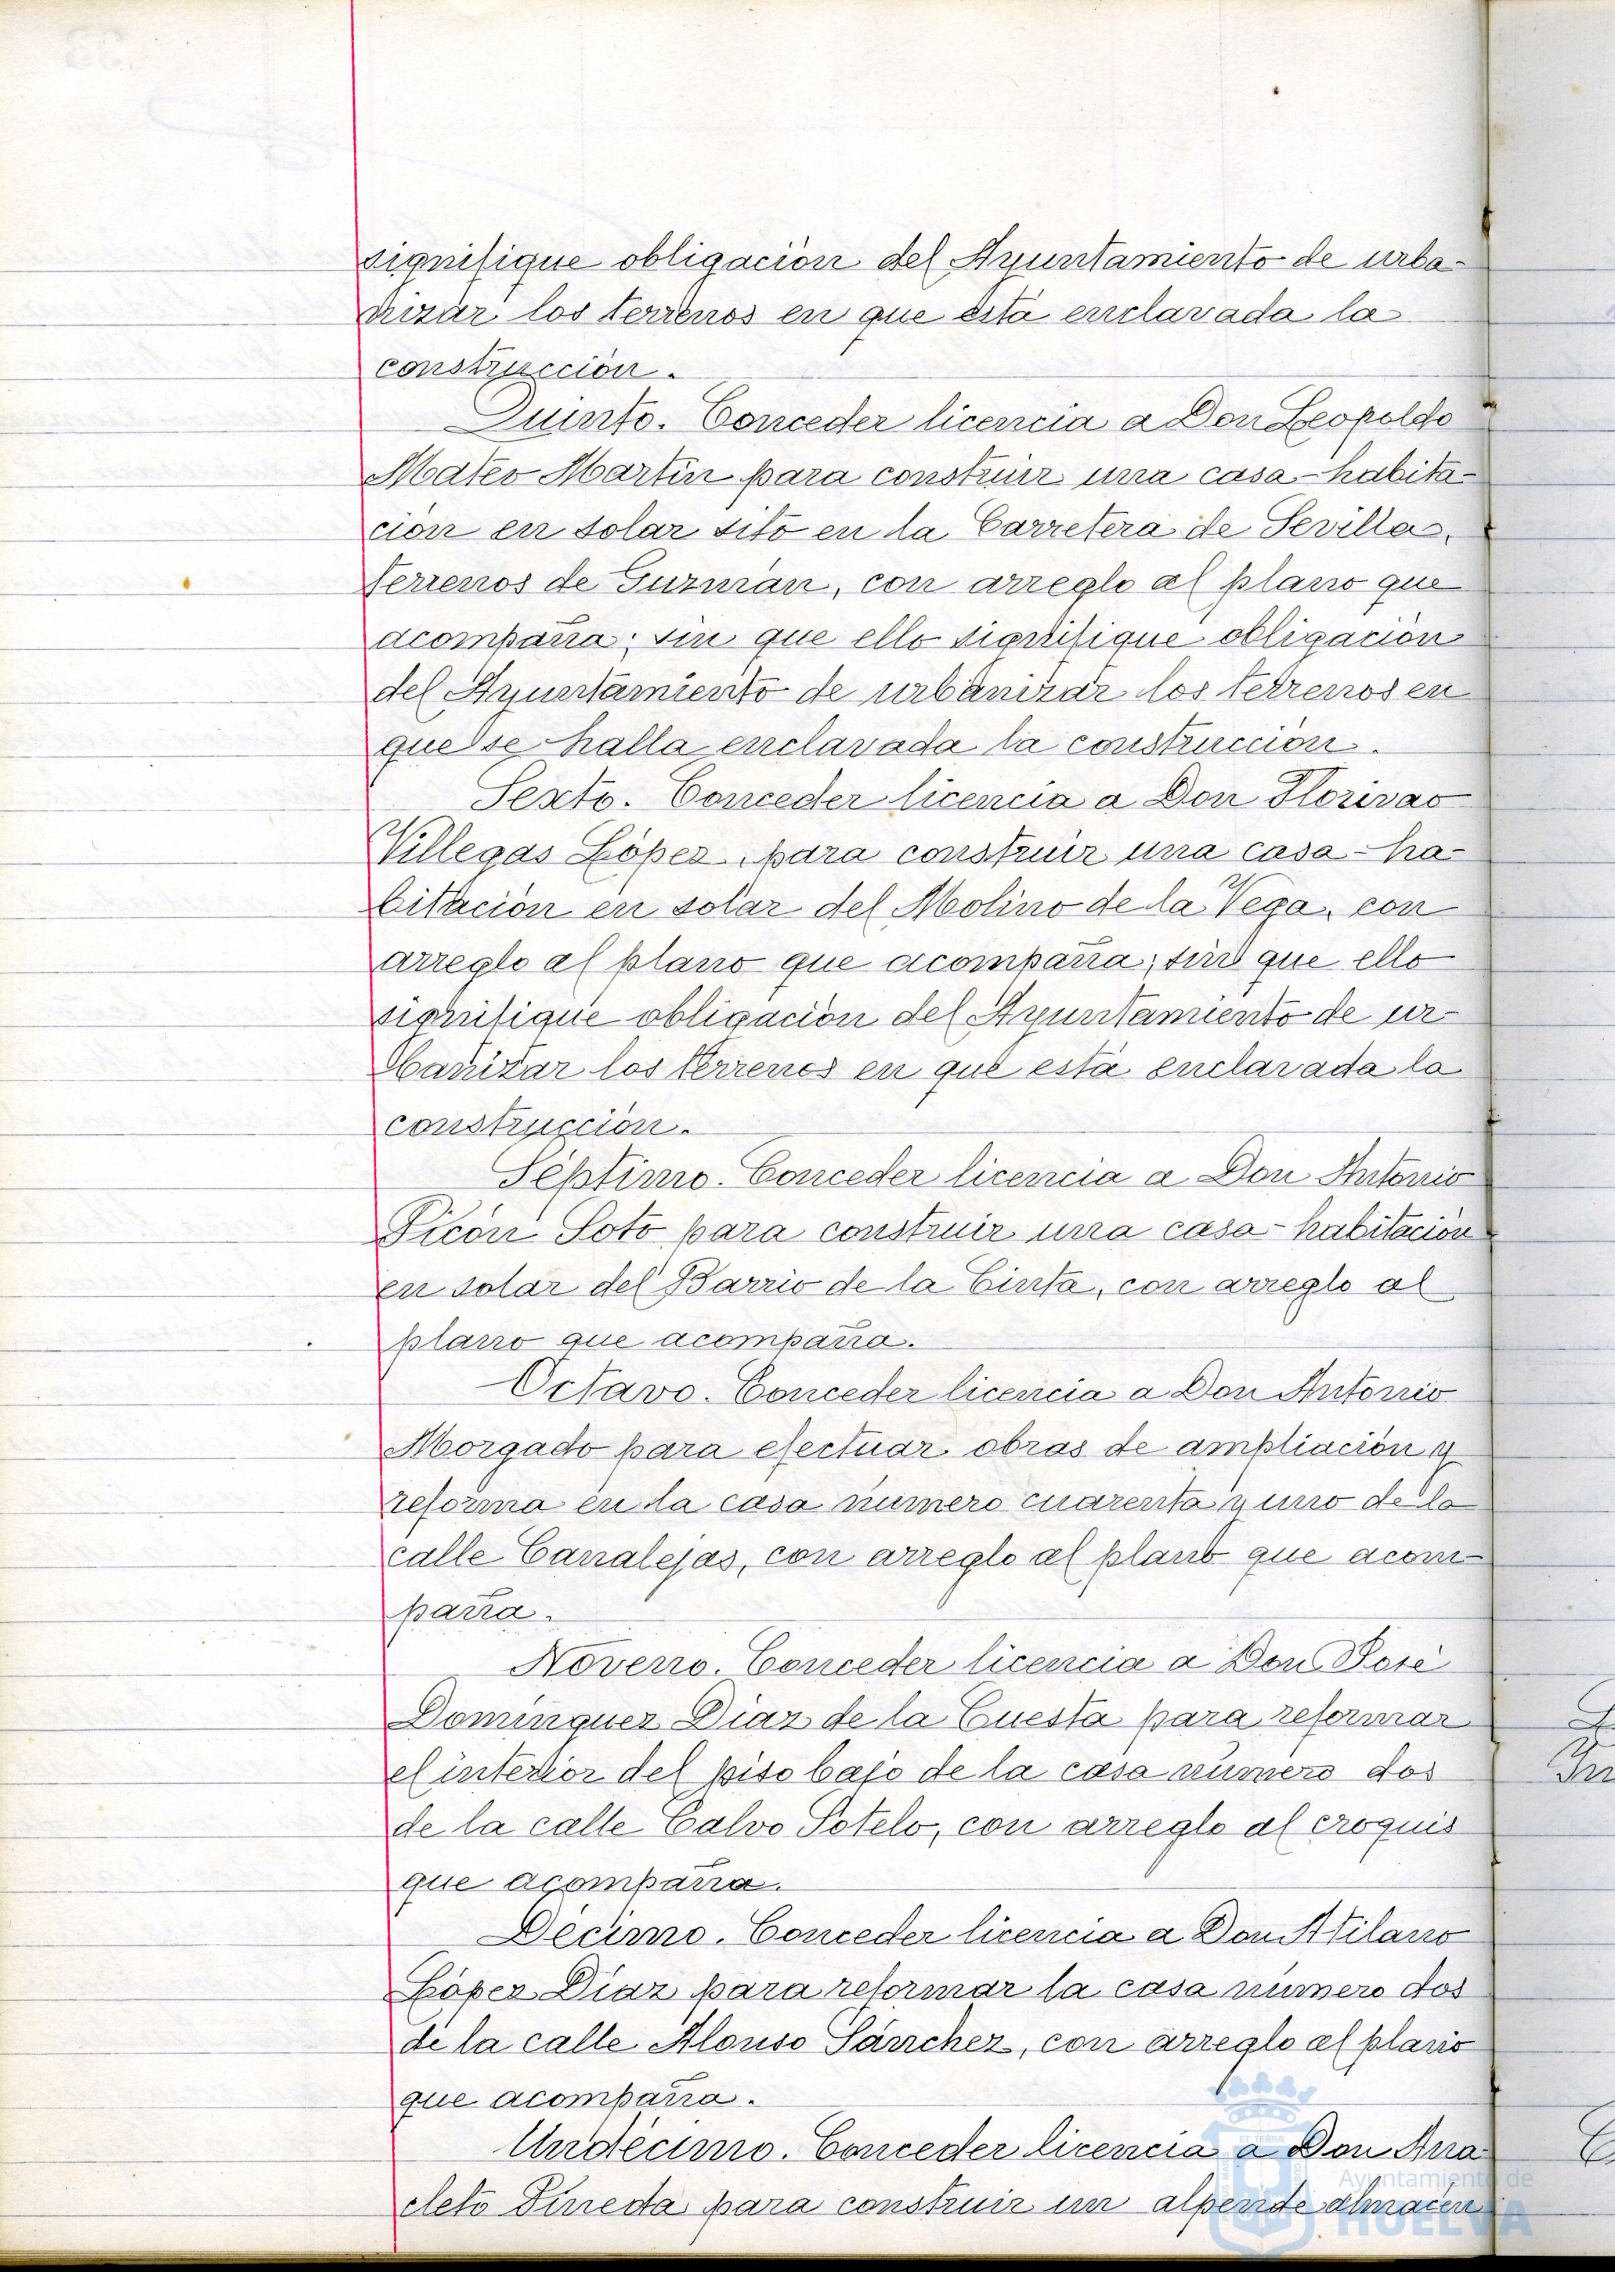 signifique obligación del Ayuntamiento de urba-
nizar los terrenos en que está enclavada la
construcción.
Quinto. Conceder licencia a Don Leopoldo
Mateo Martin para construir una casa-habita-
ción en solar sito en la Carretera de Sevilla,
terrenos de Guzmán, con arreglo al plano que
acompaña; sin que ello signifique obligación
del Ayuntamiento de urbanizar los terrenos en
que se halla enclavada la construcción.
Sexto. Conceder licencia a Don
Villegas López, para construir una casa-ha-
bitación en solar del Molino de la Vega, con
arreglo al plano que acompaña; sin que ello
signifique obligación del Ayuntamiento de ur-
banizar los terrenos en que está enclavada la
construcción.
Séptimo. Conceder licencia a Don Antonio
Picón Soto para construir una casa-habitación
en solar del Barrio de la Cinta, con arreglo al
plano que acompaña.
Octavo. Conceder licencia a Don Antonio
Morgado para efectuar obras de ampliación y
reforma en la casa número cuarenta y uno de la
calle Canalejas, con arreglo al plano que acom-
paña.
Noveno. Conceder licencia a Don José
Dominguez Diaz de la Cuesta para reformar
el interior del piso bajo de la casa número dos
de la calle Calvo Sotelo, con arreglo al croquis
que acompaña.
Décimo. Conceder licencia a Don Atilano
López Díaz para reformar la casa número dos
de la calle Alonso Sánchez, con arreglo al plano
que acompaña.
Undécimo. Conceder licencia a Don Ana
cleto Pineda para construir un alpende almacén
Ayuntamiento de
HUELVA